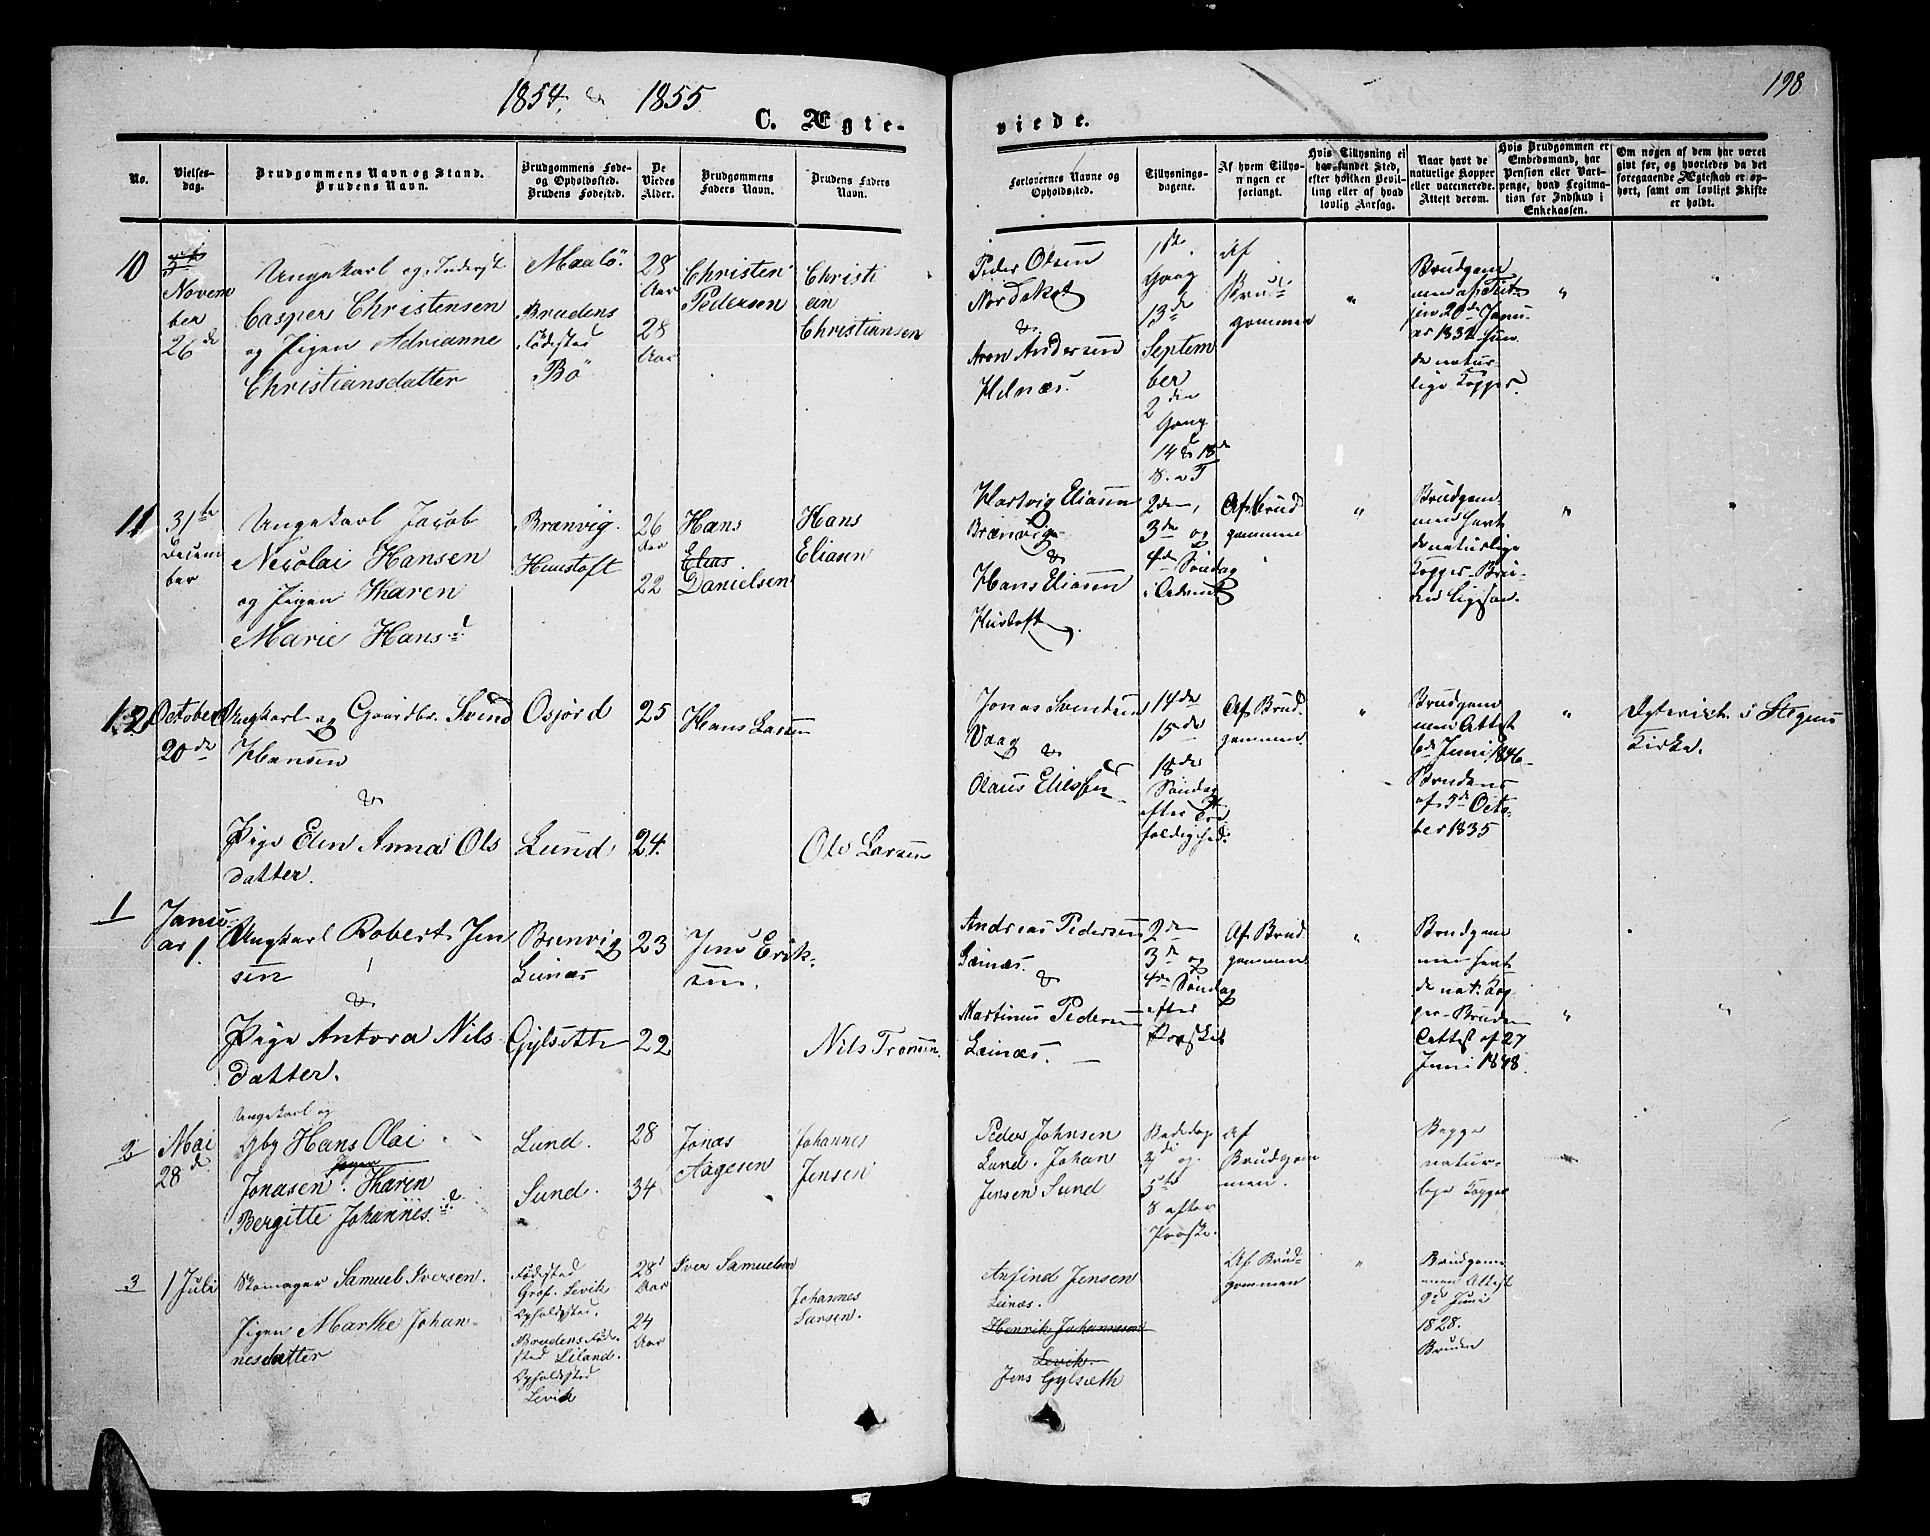 1854 & 1855
198
C. Ægte-
viede.
No.
Vielses-
dag.
Brudgommens Navn og Stand.
Brudens Navn.
Brudgommens Føde-
og Opholdssted.
Brudens Fødested.
De
Viedes
Alder.
Brudgommens
Faders Navn.
Brudens Faders
Navn.
Forlovernes Navne og
Opholdssted.
Tillysnings-
dagene.
Af hvem Tillys-
ningen er
forlangt.
Hvis Tillysning ei
har fundet Sted,
efter hvilken Bevil-
ling eller af hvad
lovlig Aarsag.
Naar havt de
naturlige Kopper
eller vaccinerede.
Attest derom.
Hvis Brudgommen er
Embedsmand, har
Pension eller Vart-
penge, hvad Legitma-
tion for Indskud i
Enkekassen.
Om nogen af dem har været
gift før, og hvorledes da det
foregaaende Ægteskab er op-
hørt, samt om lovligt Skifte
er holdt.
10
Novem
ber
26de
Ungekarl og Inderst
Casper Christensen
og Pigen Adrianne
Christiansdatter
Maalö.
Brudens
Födested
Bö
28
Aar
28
Aar
Christen
Pedersen
Christi
an
Christiansen
Peder Olsen
Nordskot
&
Aron Andersen
Helnæs.
1ste
Gang
13de
Septem
ber
2den
Gang
14 & 18de
S. e T
Af
Brud-
gommen
"
Brudgom
men
20de Janu
ar 1832
de natur
lige Kopper.
"
11
31te
Decem
ber
Ungekarl Jacob
Nicolai Hansen
og Pigen Karen
Marie Hansd
Brænvig.
Hunstoft
26
Aar
22
Hans
Elias
Danielsen
Hans
Eliasen
Hartvig Eliasen
Brænvig
&
Hans Eliasen
Hustoft
2den,
3de og
4de Söndag
i Advent
Af Brud
gommen
"
Brudgom
men havt
de naturlige
Kopper Bru-
den ligesaa.
"
12
October
20de
Ungkarl og Gaardbr. Svend
Hansen
&
Pige Elen Anna Ols
datter.
Osjord
Lund
25
24.
Hans Larsen
Ole Larsen
Jonas Svendsen
Vaag
&
Olaus Eliesen
14de
15de
18de
Söndag
efter Tre
foldighed.
Af Brud
gommen.
"
Brudgom
men Attest
6de Juni 1846
Brudens
af 5de Octo-
ber 1835
"
Ægteviet i Stegens
Kirke.
1
Janu
ar 1.
Ungkarl Robert Jen
sen
&
Pige Antora Nils
datter.
Brenvig
Leinæs
Gylseth
23
22
Jens Erik-
sen.
Nils Tronsen.
Andreas Pedersen
Leinæs.
&
Martinus Pedersen
Leinæs.
2den
3de og
4de Söndag
efter
Paaske
Af Brud
gommen
"
Brudgom
men havt
de nat. Kop
per Bruden
Attest af 27
Juni 1848.
"
"
2
Mai
28de
Ungekarl og
Hans Olai
Jonasen. Pigen Karen
Bergitte Johannesd.
Lund.
Sund.
28
34
Jonas
Aagesen
Johannes
Jensen
Peder Johnsen
Lund. Johan
Jensen Sund
Bededag
og
5te
S efter
Paaske.
Af
Brudgom
men.
Begge
natur-
lige Kopper
3
1 Juli
Skomager Samuel Iversen.
Pigen Marthe Johan-
nesdatter
Födested
Grof. Levik
Opholdssted.
Brudens Föde-
sted Liland.
Opholdssted
Levik
28
Aar
24
Aar
Iver Samuelsen
Johannes
Larsen.
Anfind Jensen
Leinæs.
Henrik Johannesen
Levik.
Jens Gylseth
Af Brud
gommen
"
Brudgom
men Attest
9de Juni
1828.
Bruden